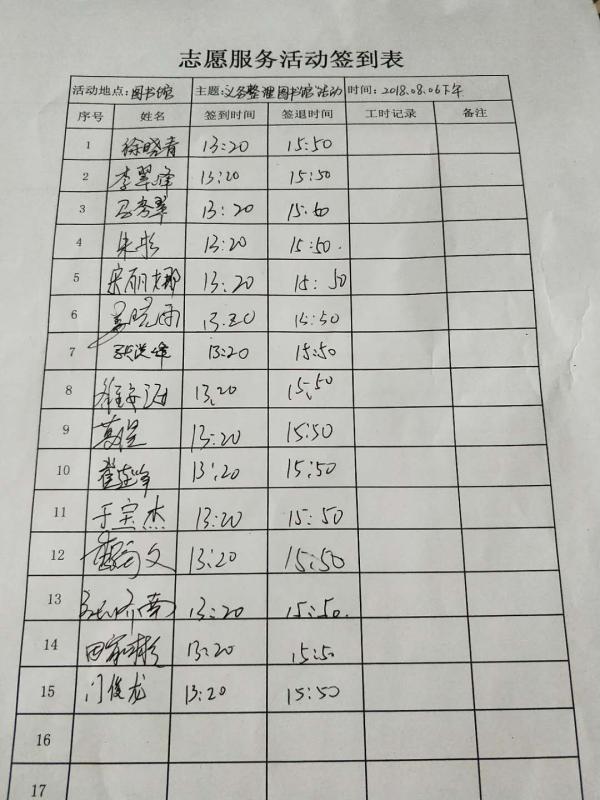 志愿服务活动签到表
活动地点: 图书馆 主题: 义务整理图书馆活动 时间: 2018.08.06下午
序号 姓名 签到时间 签退时间 工时记录 备注
1 徐晓青 13:20 15:50
2 李翠峰 13:20 15:50
3 马秀翠 13:20 15:50
4 朱彬 13:20 15:50.
5 宋丽娜 13:20 15:50
6 13:20 15:50
7 张洪峰 13:20 15:50
8 13:20 15:50
9 葛煜 13:20 15:50
10 13:20 15:50
11 于宝杰 13:20 15:50
12 文 13:20 15:50
13 13:20 15:50.
14 田家彬 13:20 15:50
15 门俊龙 13:20 15:50
16
17